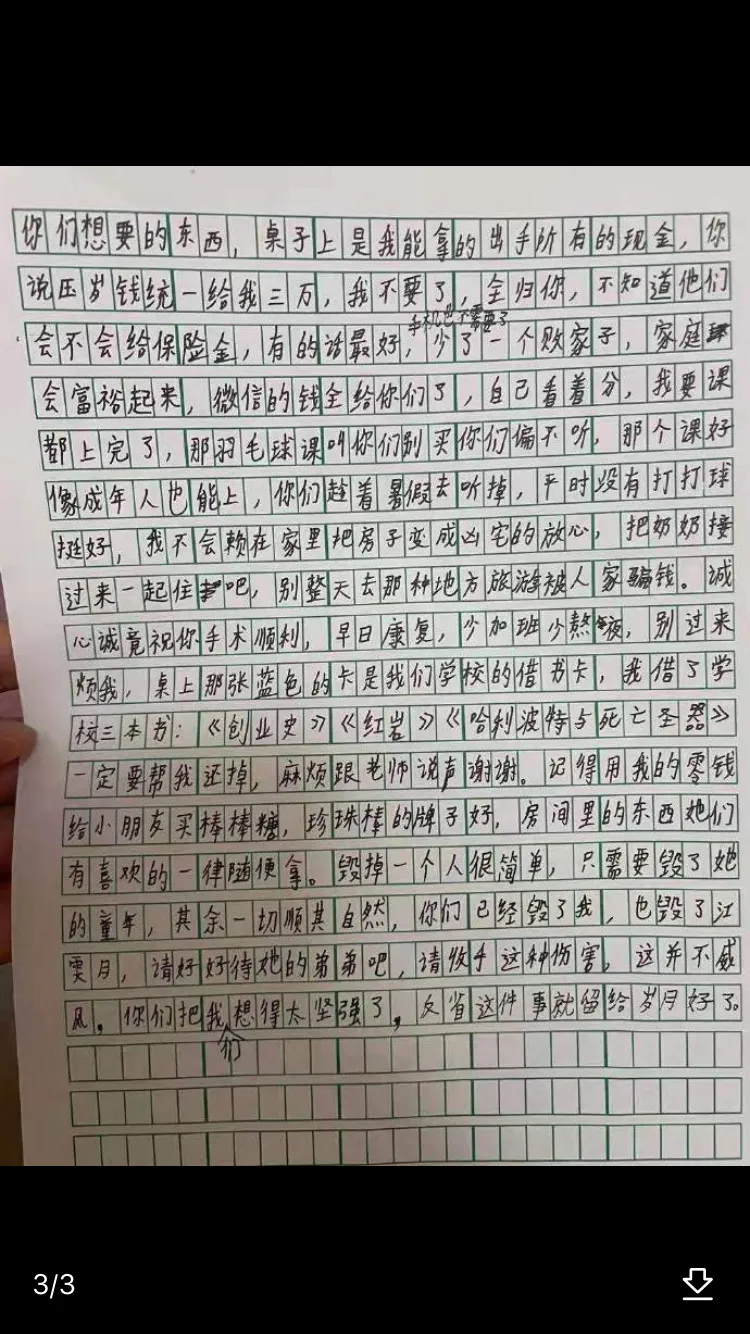 你们想要的东西，桌子上是我能拿的出手所有的现金，你
说压岁钱统一给我三万，我不要了，全归你，不知道他们
手机也不需要了
会不会给保险金，有的话最好，少了一个败家子，家庭
会富裕起来，微信的钱全给你们了，自己看着分，我要课
都上完了，那羽毛球课叫你们别买你们偏不听，那个课好
像成年人也能上，你们趁着暑假去听掉，平时没有打打球
挺好，我不会赖在家里把房子变成凶宅的放心，把奶奶接
过来一起住吧，别整天去那种地方旅游被人家骗钱。诚
心诚竟祝你手术顺利，早日康复，少加班少熬夜，别过来
烦我，桌上那张蓝色的卡是我们学校的借书卡，我借了学
校三本书：《创业史》《红岩》《哈利波特与死亡圣器》
一定要帮我还掉，麻烦跟老师说声谢谢。记得用我的零钱
给小朋友买棒棒糖，珍珠棒的牌子好，房间里的东西她们
有喜欢的一律随便拿。毁掉一个人很简单，只需要毁了她
的童年，其余一切顺其自然，你们已经毁了我，也毁了江
雯月，请好好待她的弟弟吧，请收手这种伤害，这并不威
风，你们把我们想得太坚强了，反省这件事就留给岁月好了。
3/3